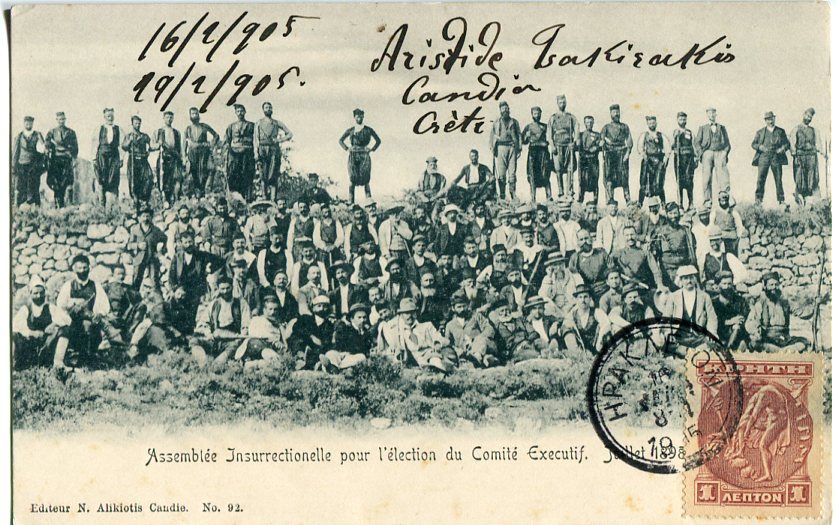 16/2/905
19/2/905.
Aristide
Candia
Crète
Assemblée Insurrectionelle pour l'élection du Comité Executif. Juillet 1896
ΗΡΑΚΛΕΙΟΝ
ΚΡΗΤΗ
1 ΛΕΠΤΟΝ 1
Editeur N. Alikiotis Candie. No. 92.